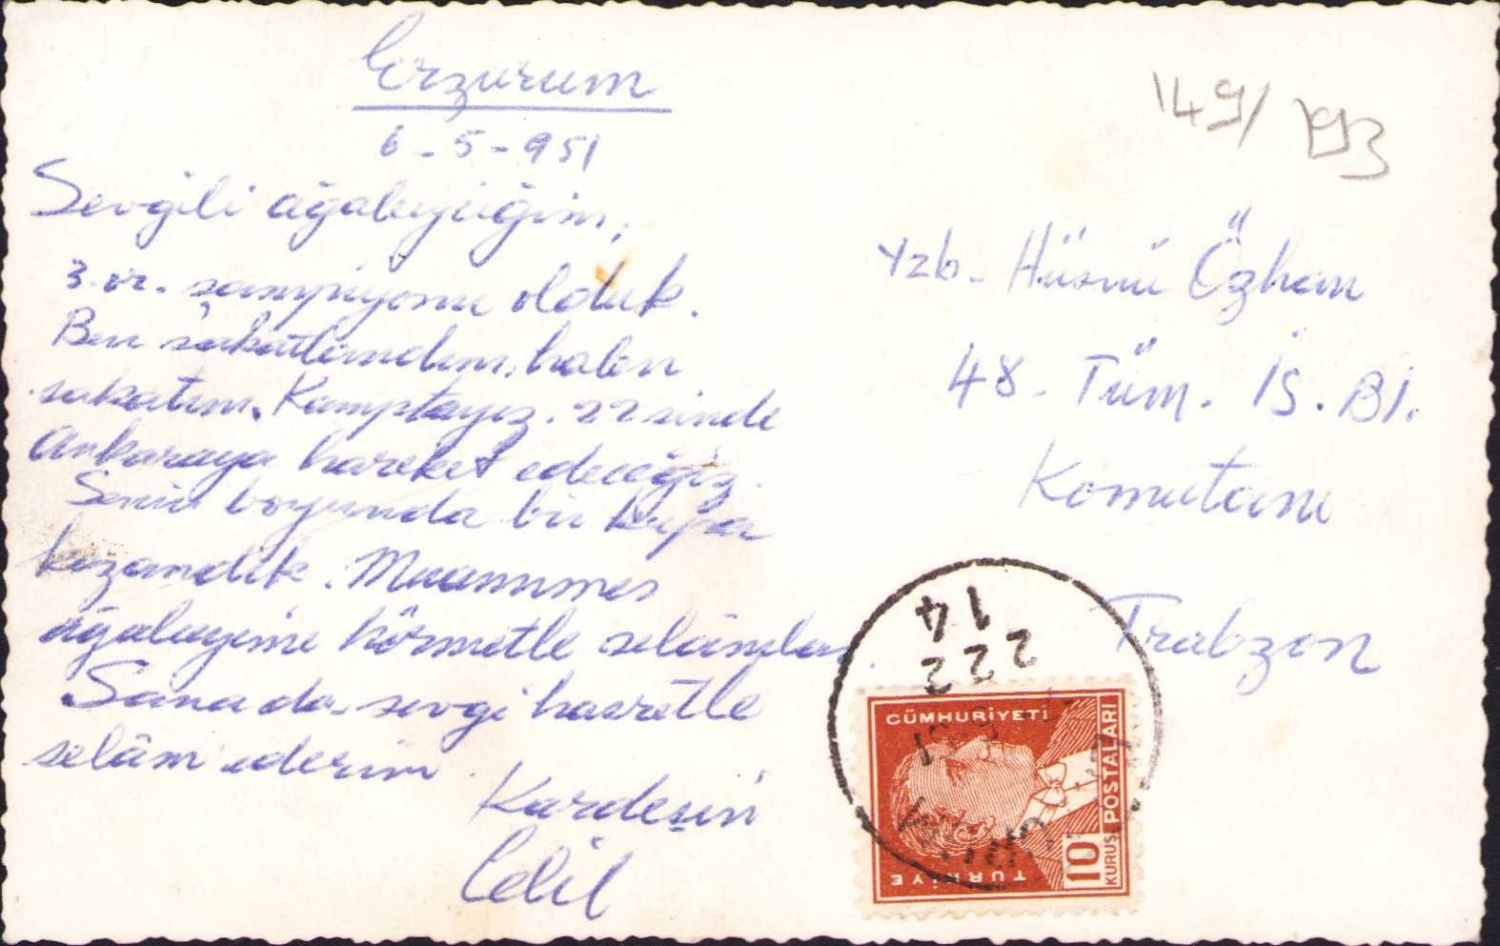 Erzurum
6-5-951
Sevgili ağabeyciğim,
3.or. şampiyonu olduk.
Ben sakatlandım, halen
sakatım. Kamptayız. 22 sinde
Ankaraya hareket edeceğiz.
Senin boyunda bir kupa
kazandık. Muammer
ağabeyime hörmetle selâmlar.
Sana da sevgi hasretle
selâm ederim.
Kardeşin
Celil
149/ 193
Yzb. Hüsnü Özhan
48. Tüm. İS. Bl.
Komutanı
Trabzon
14
222
CÜMHURİYETİ
POSTALARI
TÜRKİYE
10
KURUŞ